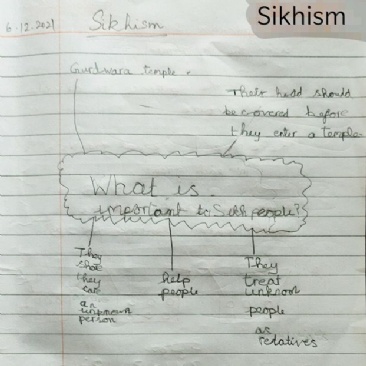 Sikhism
6.12.2021
Sikhism
Gurdwara temple.
Their head should
be covered before
they enter a temple
What is
important to Sikh people?
They
they
can
an
unknown
person
help
people
They
treat
unknown
people
as
relatives